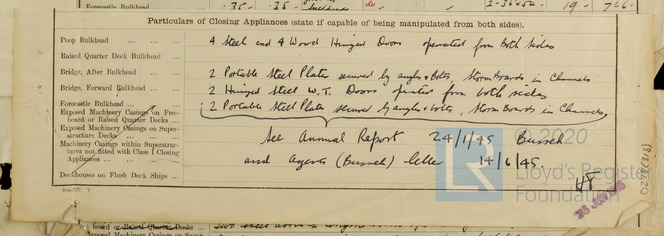 Particulars of Closing Appliances (state if capable of being manipulated from both sides).
Poop Bulkhead ... ... ... 4 Steel and 4 Wood Hinged Doors operated from Both sides
Raised Quarter Deck Bulkhead ...
Bridge, After Bulkhead ... ... 2 Portable Steel Plates secured by angles & bolts, Storm Boards in Channels
Bridge, Forward Bulkhead ... 2 Hinged Steel W.T. Doors operated from both sides
Forecastle Bulkhead ... ... 2 Portable Steel Plates secured by angles & bolts, Storm Boards in Channels
Exposed Machinery Casings on Freeboard or Raised Quarter Decks ...
Exposed Machinery Casings on Superstructure Decks
Machinery Casings within Superstructures not fitted with Class I Closing Appliances ...
Deckhouses on Flush Deck Ships ...
See Annual Report 24/1/45
and Agents letter 14/6/45.
© 2020
LR
Lloyd's Register
Foundation